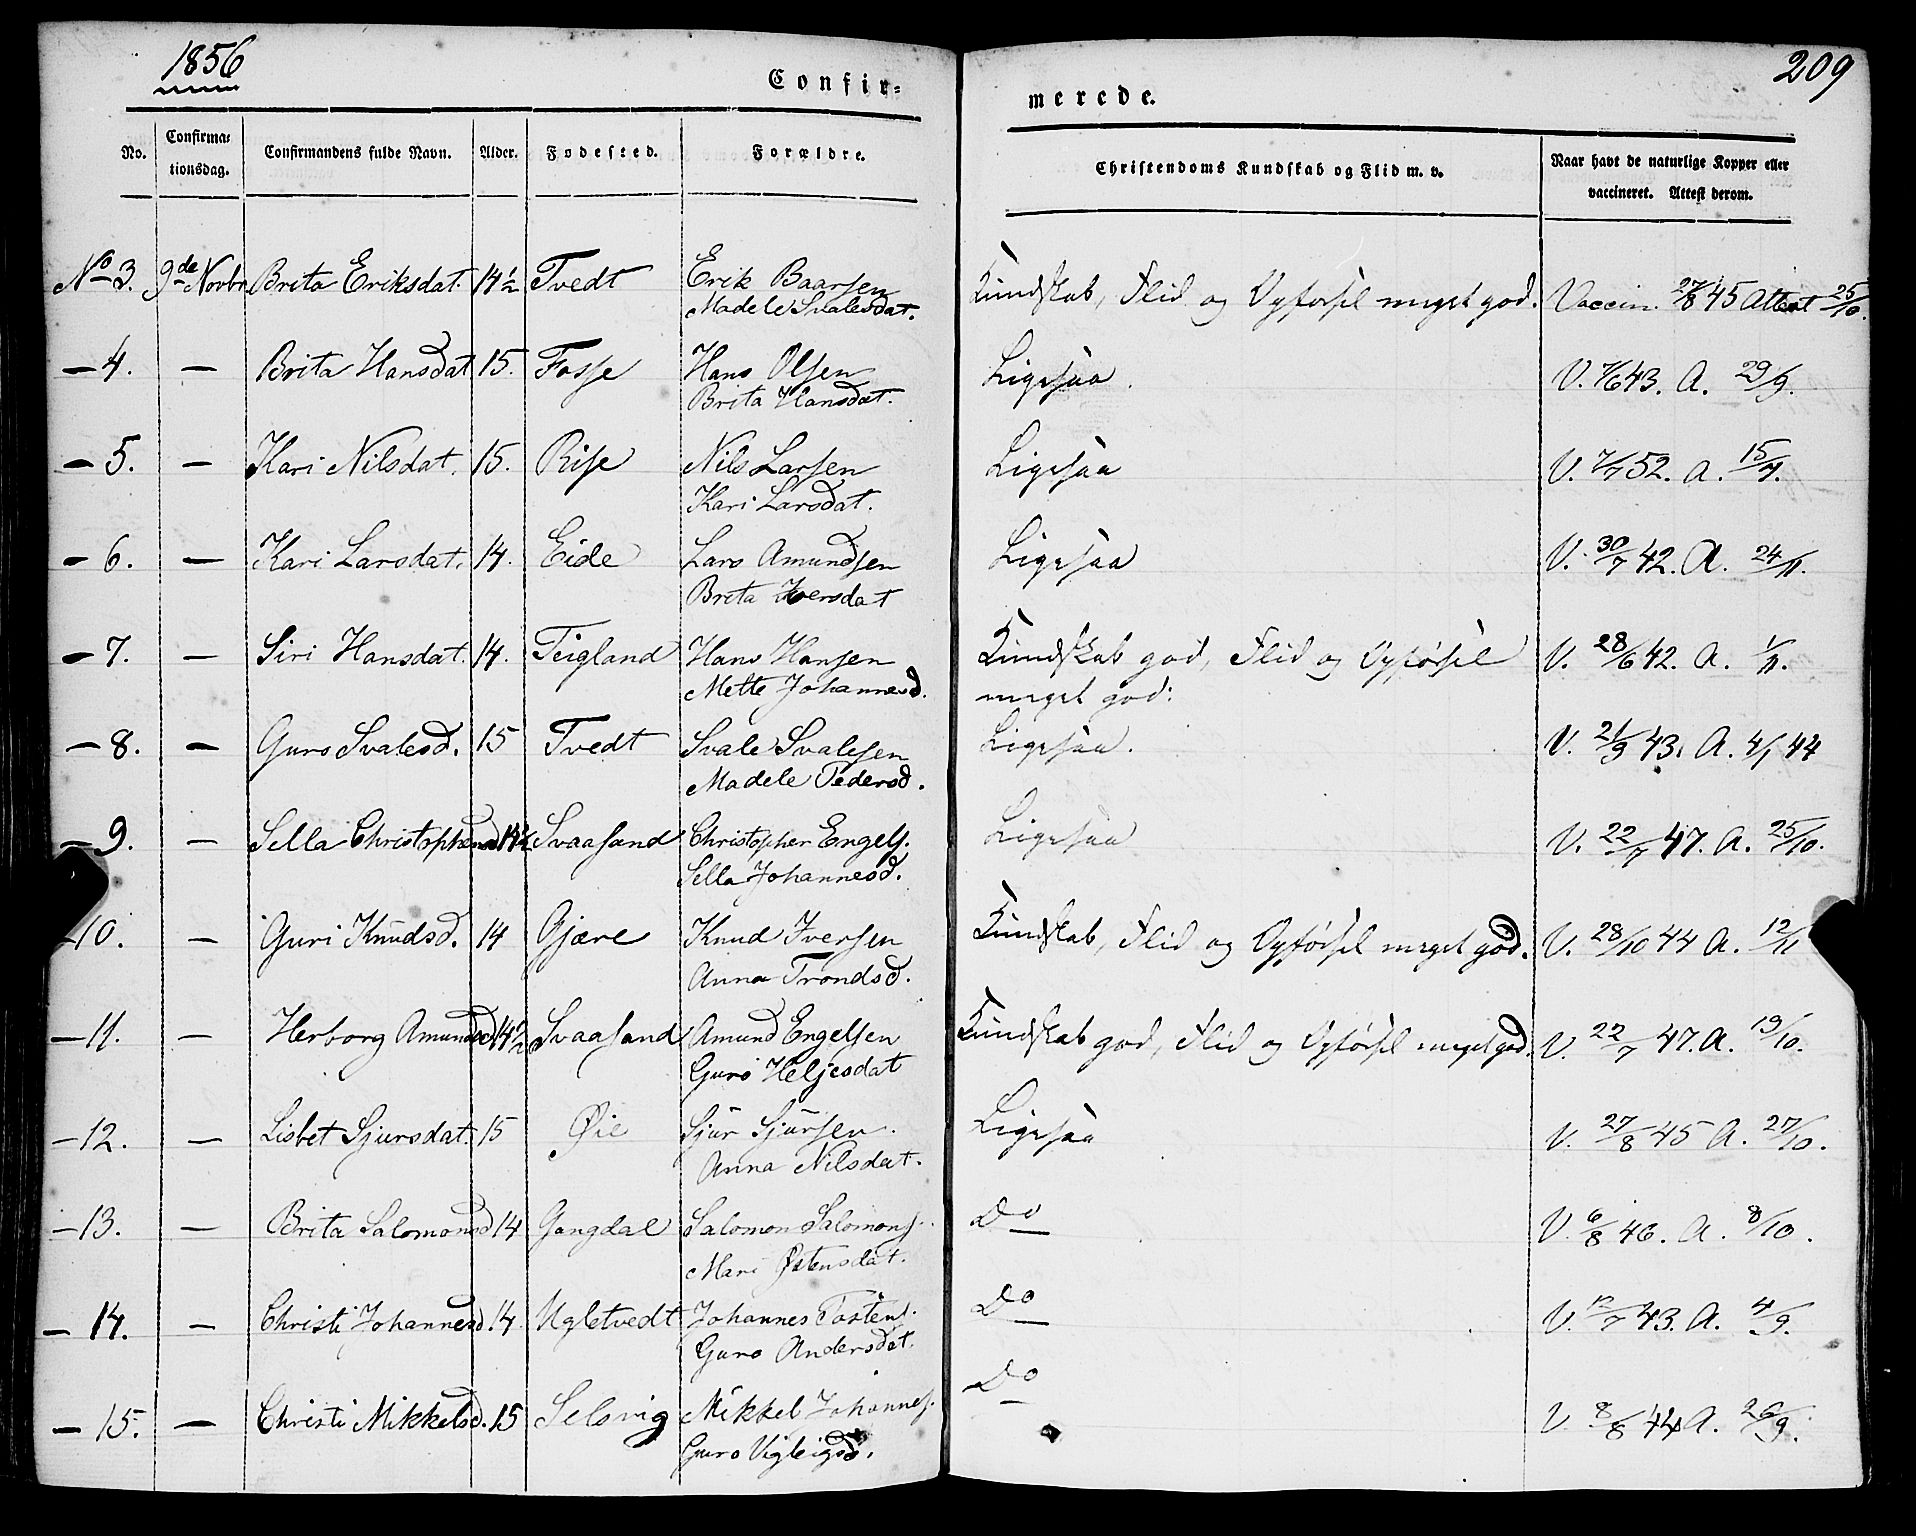 1856
209
Confir=
merede.
No.
Confirma=
tionsdag.
Confirmandens fulde Navn.
Alder.
Fødested.
Forældre.
Christendoms Kundskab og Flid m. v.
Naar havt de naturlige Kopper eller
vaccineret. Attest derom.
No 3. 9de Novbr. Brita Eriksdat. 14½ Tvedt Erik Baarsen Kundskab, Flid og Opførsel meget god. Vaccin. 27/8 45 Attest 25/10.
Madele Svalesdat.
— 4. — Brita Hansdat 15. Fosse Hans Olsen Ligesaa. V. 7/6 43. A. 29/9.
Brita Hansdat.
— 5. — Kari Nilsdat. 15. Rise Nils Larsen Ligesaa V. 7/7 52. A. 15/7.
Kari Larsdat.
— 6. — Kari Larsdat. 14. Eide Lars Amundsen Ligesaa V. 30/7 42. A. 24/11.
Brita Iversdat
— 7. — Siri Hansdat. 14. Teigland Hans Hansen Kundskab god, Flid og Opførsel V. 28/6 42. A. 1/11.
Mette Johannesd. meget god:
— 8. — Guro Svalesd. 15 Tvedt Svale Svalesen Ligesaa. V. 21/9 43. A. 4/1 44
Madele Pedersd.
— 9. — Sella Christophersd 14½ Svaasand Christopher Engels. Ligesaa V. 22/7 47. A. 25/10.
Sella Johannesd.
— 10. — Guri Knudsd. 14 Gjære Knud Iversen Kundskab, Flid og Opførsel meget god. V. 28/10 44 A. 12/11
Anna Trondsd.
— 11. — Herborg Amundsd 14½ Svaasand Amund Engelsen Kundskab god, Flid og Opførsel meget god. V. 22/7 47. A. 19/10.
Guro Heljesdat
— 12. — Lisbet Sjursdat. 15 Øie Sjur Sjursen. Ligesaa V. 27/8 45 A. 27/10.
Anna Nilsdat.
— 13. — Brita Salomonsd 14 Gangdal Salomon Salomons. Do V. 6/8 46. A. 8/10.
Mari Østensdat.
— 14. — Christi Johannesd. 14. Ugletvedt Johannes Tostens. Do V. 12/7 43. A. 4/9.
Guro Andersdat.
— 15. — Christi Mikkelsd. 15 Selsvig Mikkel Johannes. Do V. 8/8 44 A. 26/9.
Guro Vigleigsd.